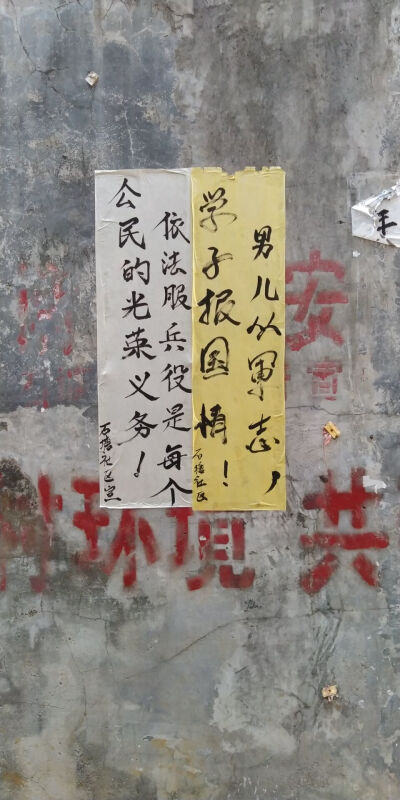 男儿从军志,
学子报国情!
石塘社区
依法服兵役是每个
公民的光荣义务!
石塘社区宣
安
宣
共
环